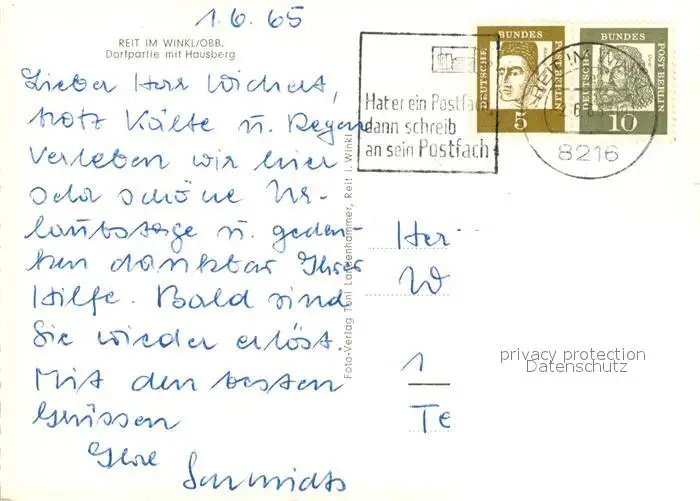 1.6.65
REIT IM WINKL/OBB.
Dorfpartie mit Hausberg
Lieber Herr Wichert,
trotz Kälte u. Regen
verleben wir hier
sehr schöne Ur-
laubstage u. geden-
ken dankbar Ihrer
Hilfe. Bald sind
Sie wieder erlöst.
Mit den besten
Grüssen
Ihre
Schmidts
Foto-Verlag Toni Langenhammer, Reit i. Winkl
Hat er ein Postfach
dann schreib
an sein Postfach
DEUTSCHE BUNDES POST BERLIN
5
DEUTSCHE BUNDES POST BERLIN
10
8216
Her
W
1
Te
privacy protection
Datenschutz